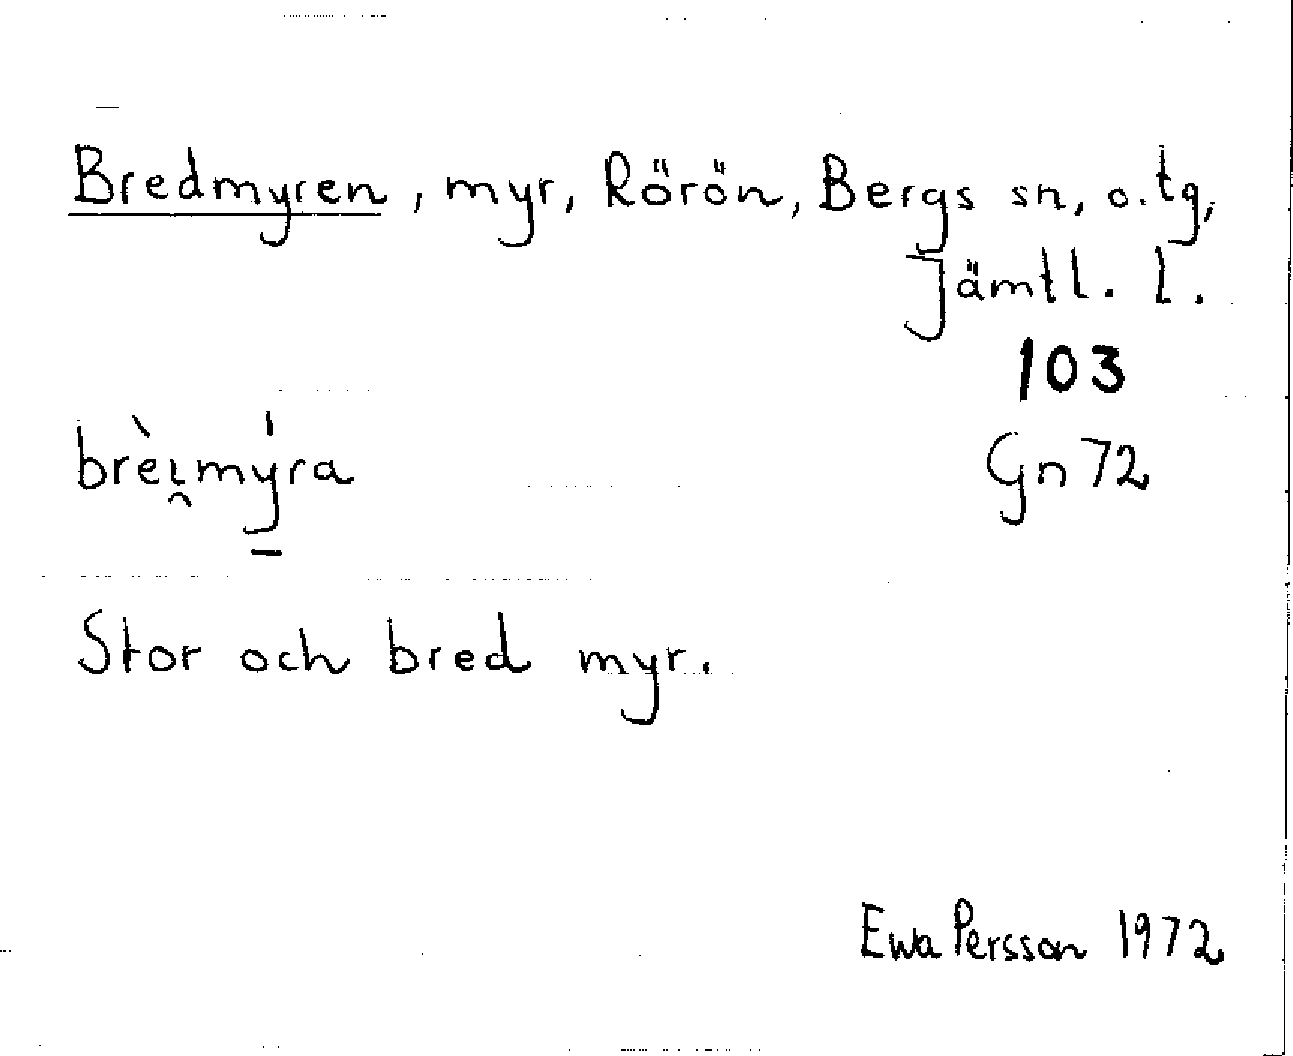 Bredmyren, myr, Rörön, Bergs sn, o. tg,
Jämtl. l.
103
brèi̯mý̠ra
Gn 72
Stor och bred myr.
Ewa Persson 1972